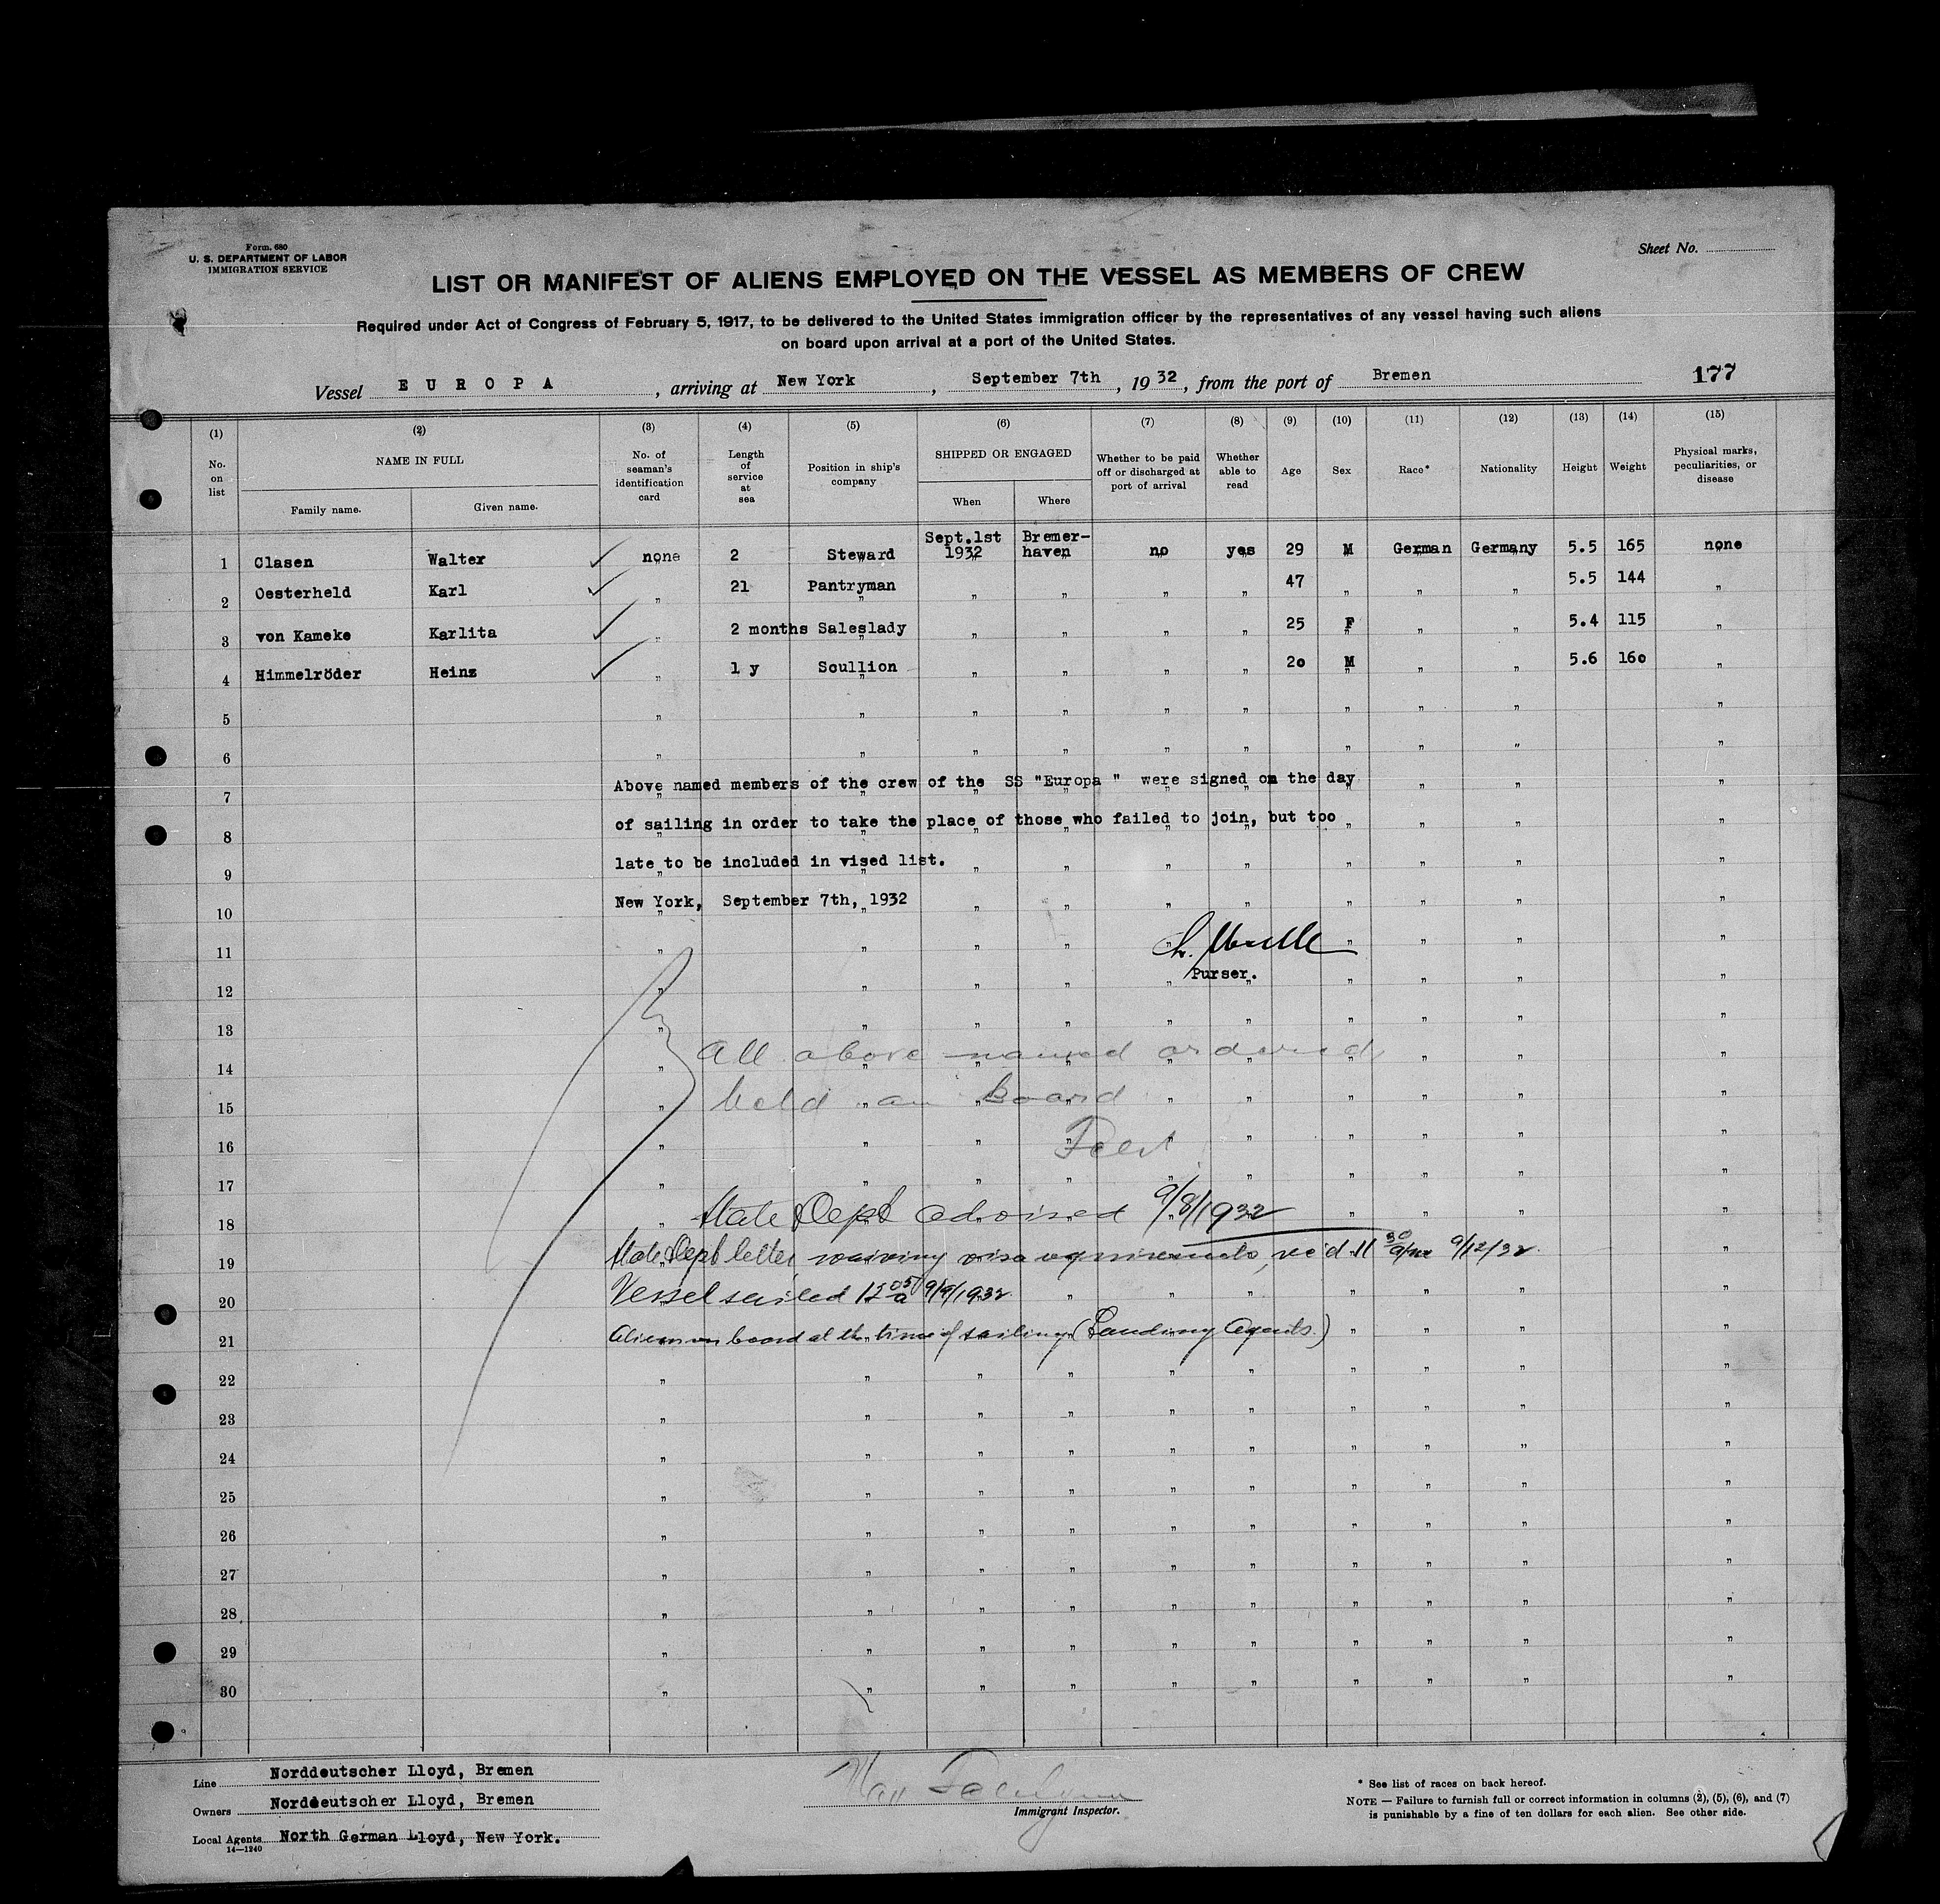 Form. 680
U. S. DEPARTMENT OF LABOR
IMMIGRATION SERVICE
Sheet No.
LIST OR MANIFEST OF ALIENS EMPLOYED ON THE VESSEL AS MEMBERS OF CREW
Required under Act of Congress of February 5, 1917, to be delivered to the United States immigration officer by the representatives of any vessel having such aliens
on board upon arrival at a port of the United States.
Vessel E U R O P A , arriving at New York , September 7th , 19 32 , from the port of Bremen 177
(1) (2) (3) (4) (5) (6) (7) (8) (9) (10) (11) (12) (13) (14) (15)
No. on list NAME IN FULL No. of seaman's identification card Length of service at sea Position in ship's company SHIPPED OR ENGAGED Whether to be paid off or discharged at port of arrival Whether able to read Age Sex Race* Nationality Height Weight Physical marks, peculiarities, or disease
Family name. Given name. When Where
1 Clasen Walter ✓ none 2 Steward Sept.1st 1932 Bremer-haven no yes 29 M German Germany 5.5 165 none
2 Oesterheld Karl ✓ " 21 Pantryman " " " " 47 " " " 5.5 144 "
3 von Kameke Karlita ✓ " 2 months Saleslady " " " " 25 F " " 5.4 115 "
4 Himmelröder Heinz ✓ " 1 y Scullion " " " " 20 M " " 5.6 160 "
5 " " " " " " " " " "
6 " " " " " " " " " "
7 Above named members of the crew of the SS "Europa " were signed on the day " " "
8 of sailing in order to take the place of those who failed to join, but too " " " "
9 late to be included in vised list. " " " " " " " "
10 New York, September 7th, 1932 " " " " " " " "
11 " " " " " " " " "
12 " " " " Purser. " " " "
13 " " " " " " " " " "
14 " All above named ordered " " "
15 " held on board " " " " " "
16 " " " " " " " " "
17 " " " " " " " " " "
18 " State Dept advised 9/8/1932 " " " "
19 State Dept letter waiving visa requirements, rec'd 11 30 a/m 9/12/32 "
20 Vessel sailed 12 05 a 9/9/1932 " " " " " " "
21 Aliens on board at the time of sailing (Landing Agents.) " " " "
22 " " " " " " " " " "
23 " " " " " " " " " "
24 " " " " " " " " " "
25 " " " " " " " " " "
26 " " " " " " " " " "
27 " " " " " " " " " "
28 " " " " " " " " " "
29 " " " " " " " " " "
30 " " " " " " " " " "
Line Norddeutscher Lloyd, Bremen
Owners Norddeutscher Lloyd, Bremen
Local Agents North German Lloyd, New York.
14—1240
Immigrant Inspector.
* See list of races on back hereof.
NOTE — Failure to furnish full or correct information in columns (2), (5), (6), and (7)
is punishable by a fine of ten dollars for each alien. See other side.